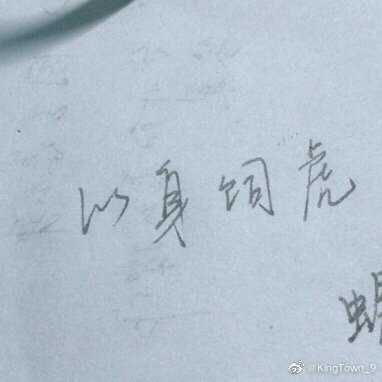 以身饲虎
@KingTown_9